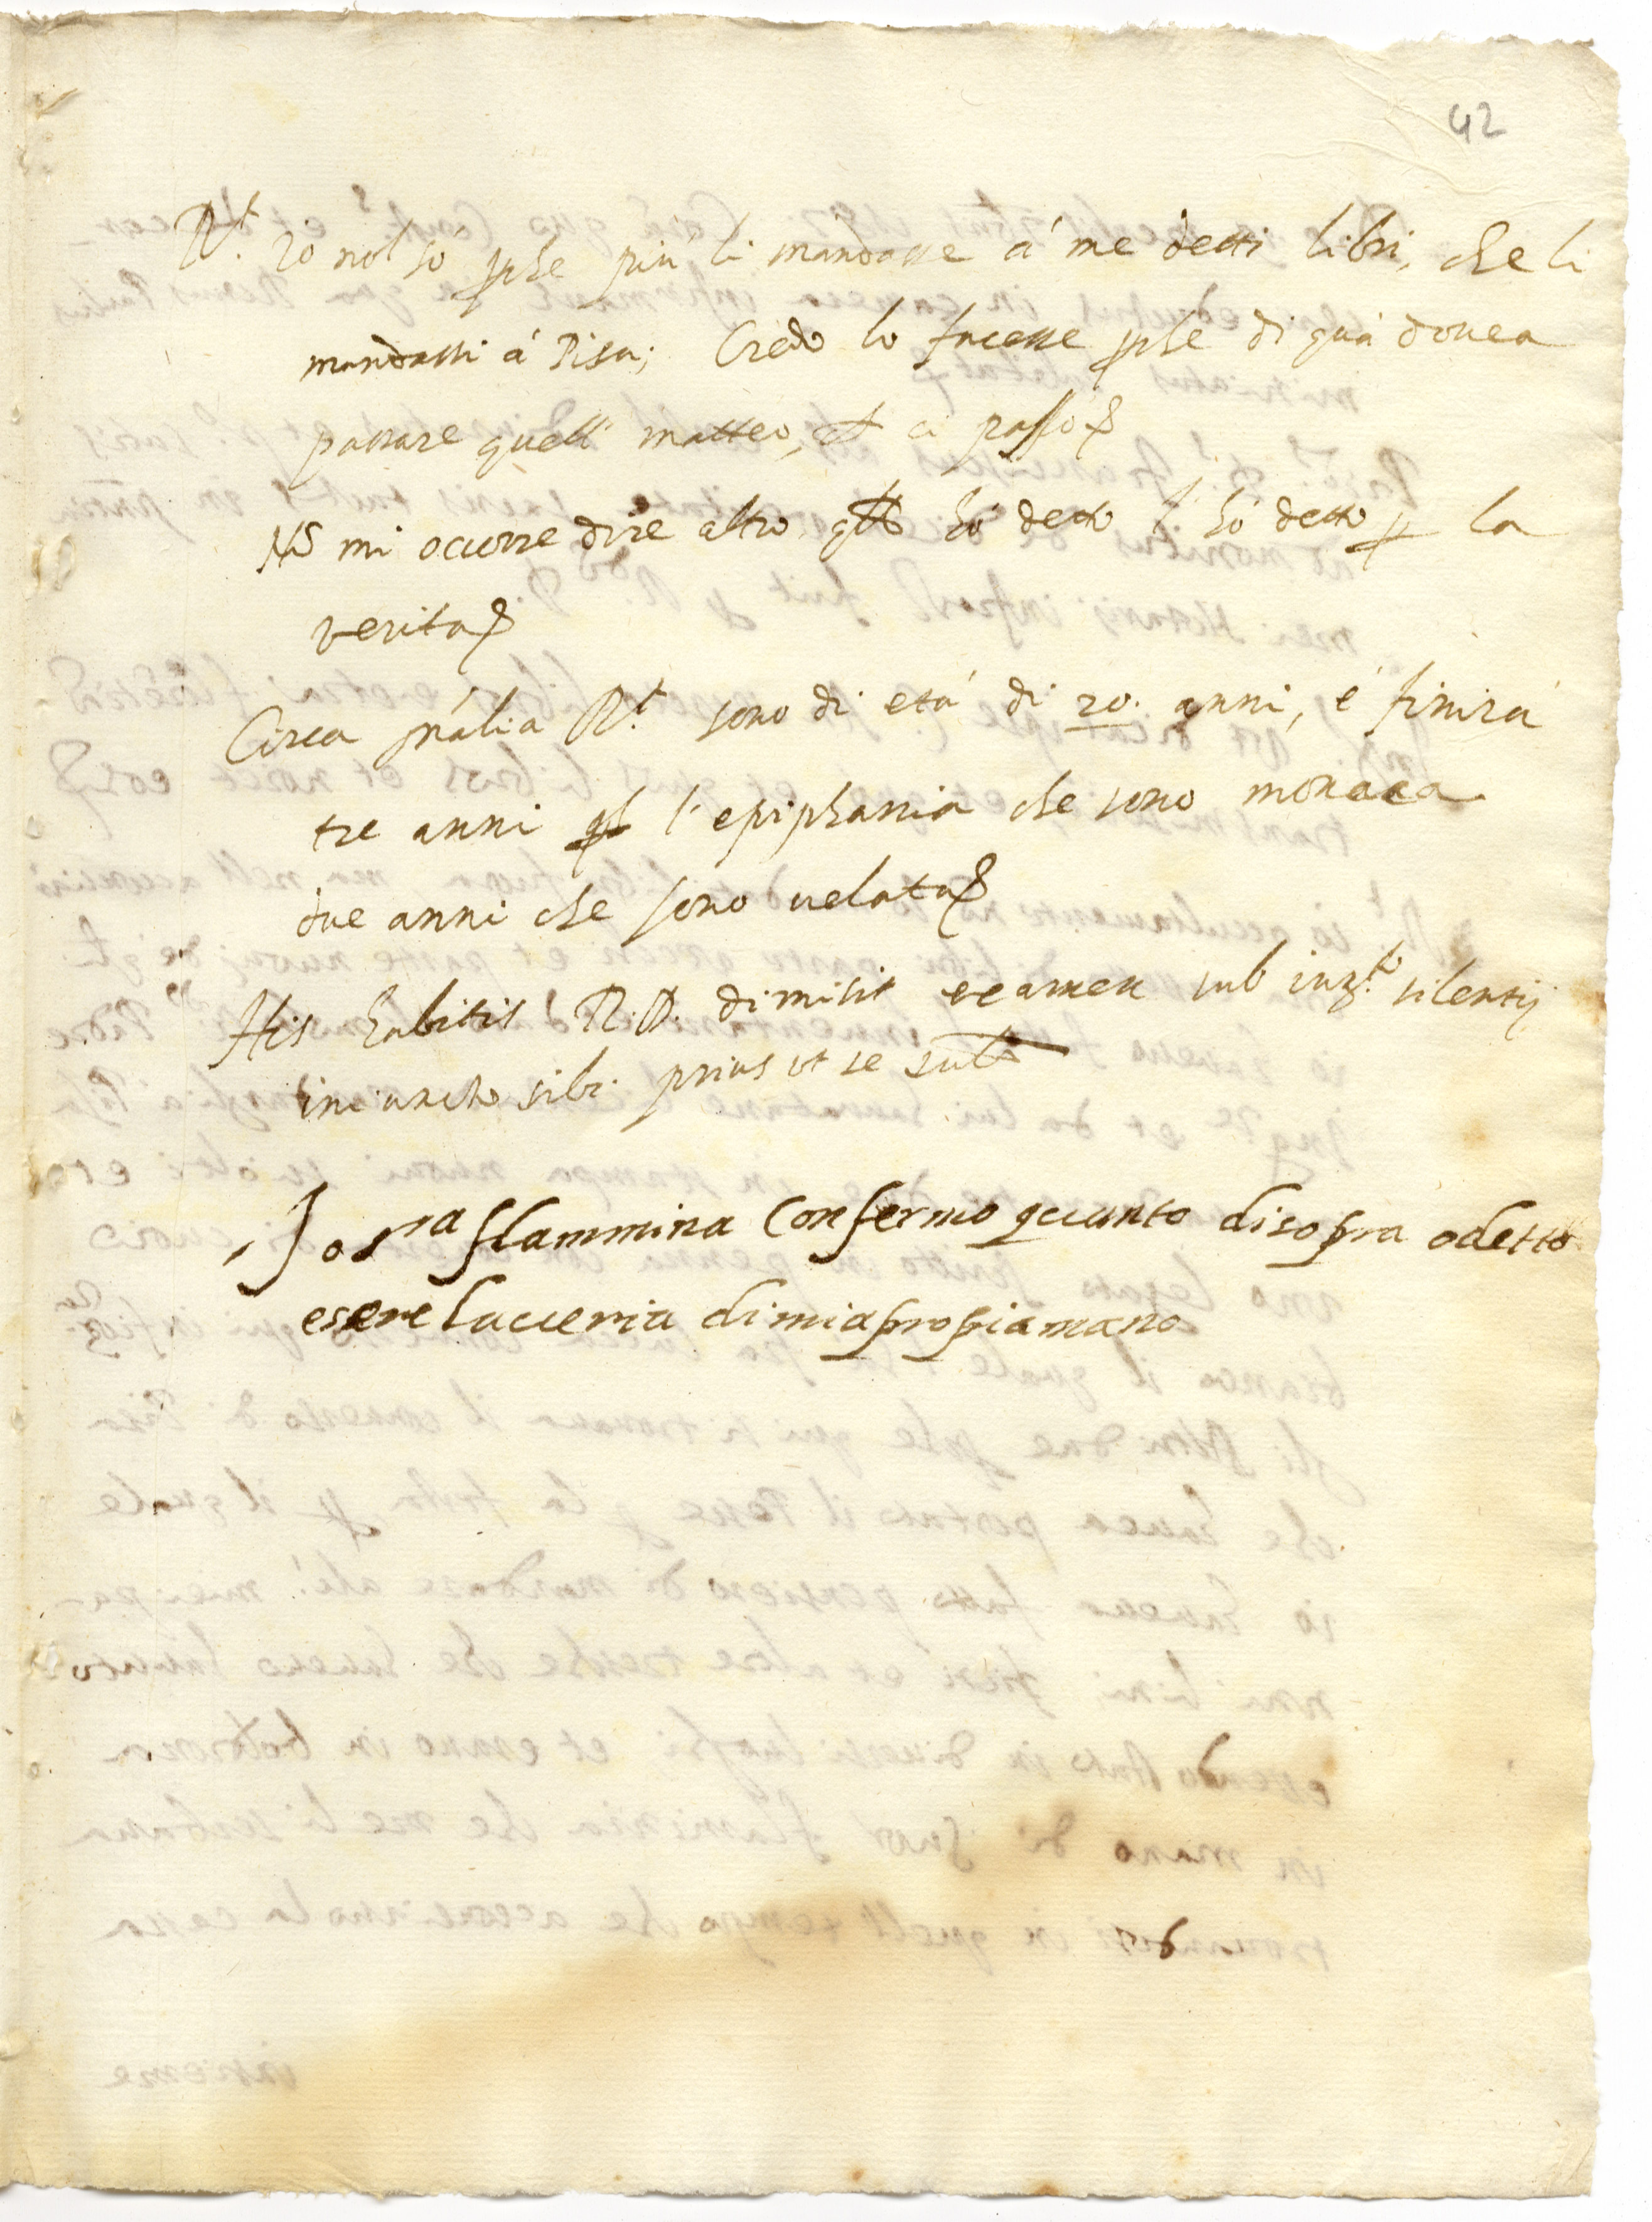 42
R.t io nol so perche più li mandasse á me detti libri, che li
mandassi á Pisa; Credo lo facesse perche di quà dovea
passare quell matteo, et ci passo
No mi occorre dire altro, ho detto l' ho detto p la
verita
Circa gnalia R.t sono di etá di 20. anni, é finirà
tre anni l'epiphania che sono monaca
due anni che sono velata
His habitis R. D. dimisit examen sub iur.to silentij
iniuncto sibi prius ut se sub.t
Io s.ra flammina Confermo quanto disopra o detto
esere lacueria di mia propia mano